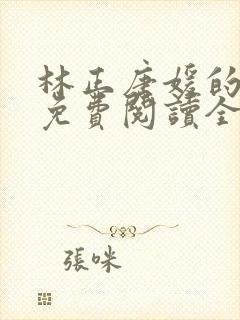 林正唐媛的
免費閱讀全
張咪